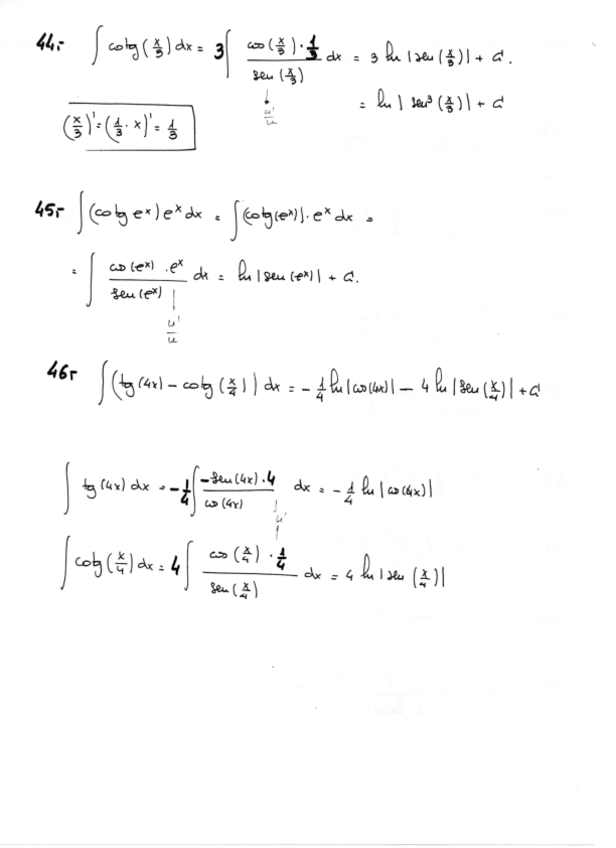 44.- ∫ cotg(x/3) dx = 3 ∫ cos(x/3) · 1/3 / sen(x/3) dx = 3 ln |sen(x/3)| + C.
u'/u
= ln |sen³(x/3)| + C
(x/3)' = (1/3 · x)' = 1/3
45.- ∫ (cotg e^x) e^x dx = ∫ (cotg(e^x)) · e^x dx =
= ∫ cos(e^x) · e^x / sen(e^x) dx = ln |sen(e^x)| + C.
u'/u
46.- ∫ (tg(4x) − cotg(x/4)) dx = − 1/4 ln |cos(4x)| − 4 ln |sen(x/4)| + C
∫ tg(4x) dx = − 1/4 ∫ −sen(4x) · 4 / cos(4x) dx = − 1/4 ln |cos(4x)|
u'
∫ cotg(x/4) dx = 4 ∫ cos(x/4) · 1/4 / sen(x/4) dx = 4 ln |sen(x/4)|